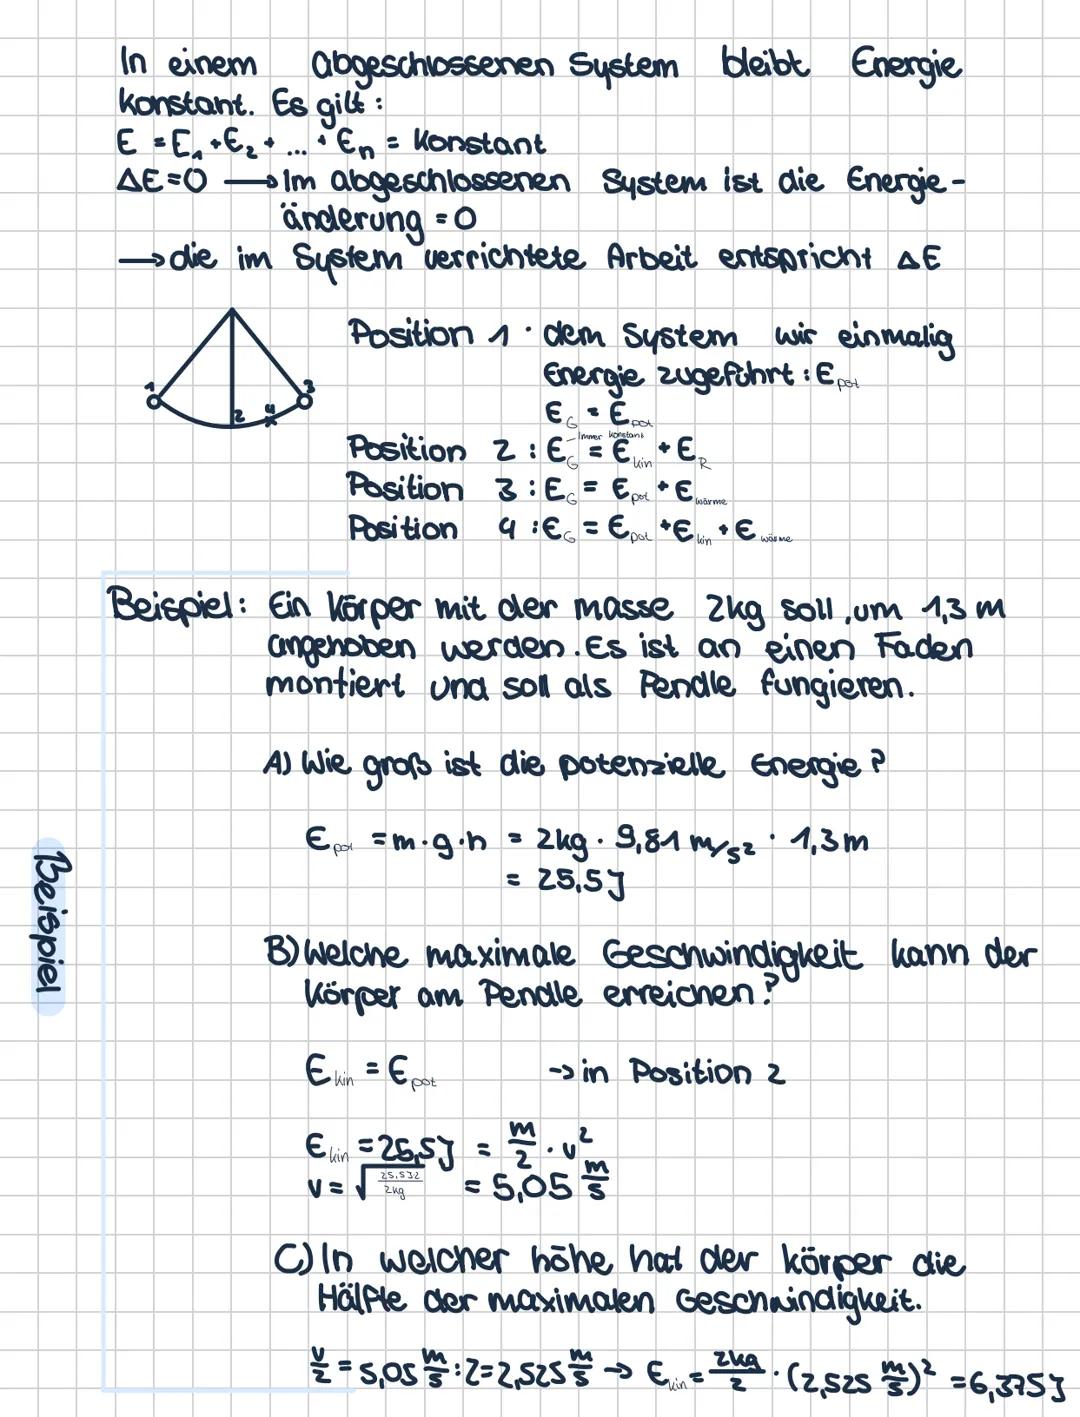 In einem abgeschlossenen System bleibt Energie
konstant. Es gilt:
E = E₁ + E₂ + ... + Eₙ = Konstant
ΔE=0 → Im abgeschlossenen System ist die Energie-
änderung = 0
→ die im System verrichtete Arbeit entspricht ΔE
1
3
2
4
Position 1 : dem System wir einmalig
Energie zugeführt : E pot
E G = E pot
immer konstant
Position 2 : E G = E kin + E R
Position 3 : E G = E pot + E wärme
Position 4 : E G = E pot + E kin + E wärme
Beispiel: Ein Körper mit der masse 2kg soll um 1,3 m
angehoben werden. Es ist an einen Faden
montiert und soll als Pendle fungieren.
A) Wie groß ist die potenzielle Energie?
E pot = m·g·h = 2kg · 9,81 m/s² · 1,3m
= 25,5J
Beispiel
B) Welche maximale Geschwindigkeit kann der
Körper am Pendle erreichen?
E kin = E pot → in Position 2
E kin = 25,5J = m/2 · v²
v = √ 25,5J2 / 2kg = 5,05 m/s
C) In welcher höhe hat der körper die
Hälfte der maximalen Geschwindigkeit.
v/2 = 5,05 m/s : 2 = 2,525 m/s → E kin = 2kg/2 · (2,525 m/s)² = 6,375J